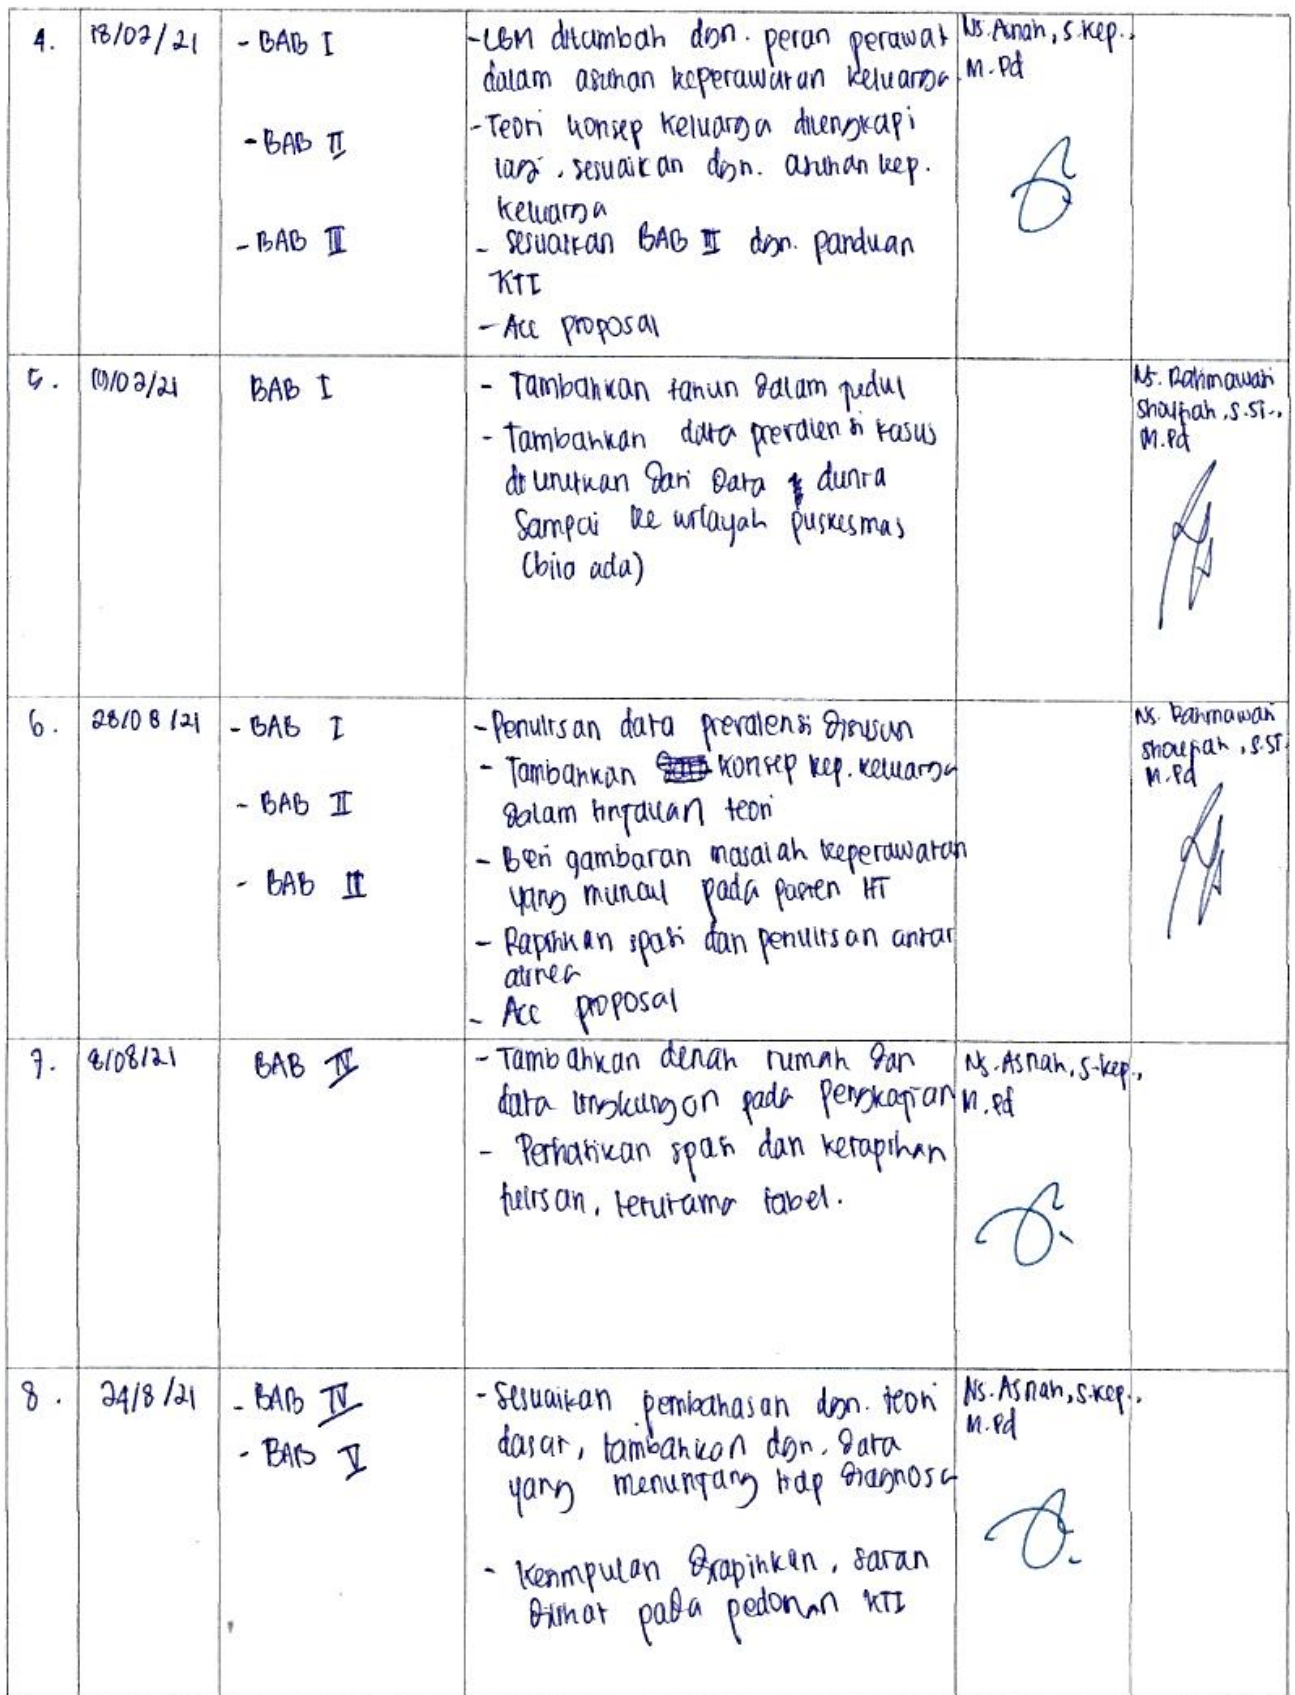 4. 18/02/21 - BAB I
- LBM ditambah dgn. peran perawat
dalam asuhan keperawatan keluarga
- BAB II
- Teori konsep keluarga dilengkapi
lagi, sesuaikan dgn. asuhan kep.
keluarga
- BAB III
- sesuaikan BAB III dgn. panduan
KTI
- Acc proposal
Ns. Asnah, S.Kep.,
M.Pd
5. BAB I
- Tambahkan tahun dalam judul
- Tambahkan data prevalensi kasus
di urutkan dari data dunia
sampai ke wilayah puskesmas
(bila ada)
Ns. Rahmawati
Shoufiah, S.ST.,
M.Pd
6. 28/08/21 - BAB I
- Penulisan data prevalensi disusun
- Tambahkan konsep kep. keluarga
- BAB II
dalam tinjauan teori
- Beri gambaran masalah keperawatan
- BAB III
yang muncul pada pasien HT
- Rapihkan spasi dan penulisan antar
alinea
- Acc proposal
Ns. Rahmawati
Shoufiah, S.ST
M.Pd
7. 8/08/21 BAB IV
- Tambahkan denah rumah dan
data lingkungan pada pengkajian
- Perhatikan spasi dan kerapihan
tulisan, terutama tabel.
Ns. Asnah, S.Kep.,
M.Pd
8. 24/8/21 - BAB IV
- BAB V
- Sesuaikan pembahasan dgn. teori
dasar, tambahkan dgn. data
yang menunjang tiap diagnosa
- Kesimpulan dirapihkan, saran
dilihat pada pedoman KTI
Ns. Asnah, S.Kep.,
M.Pd